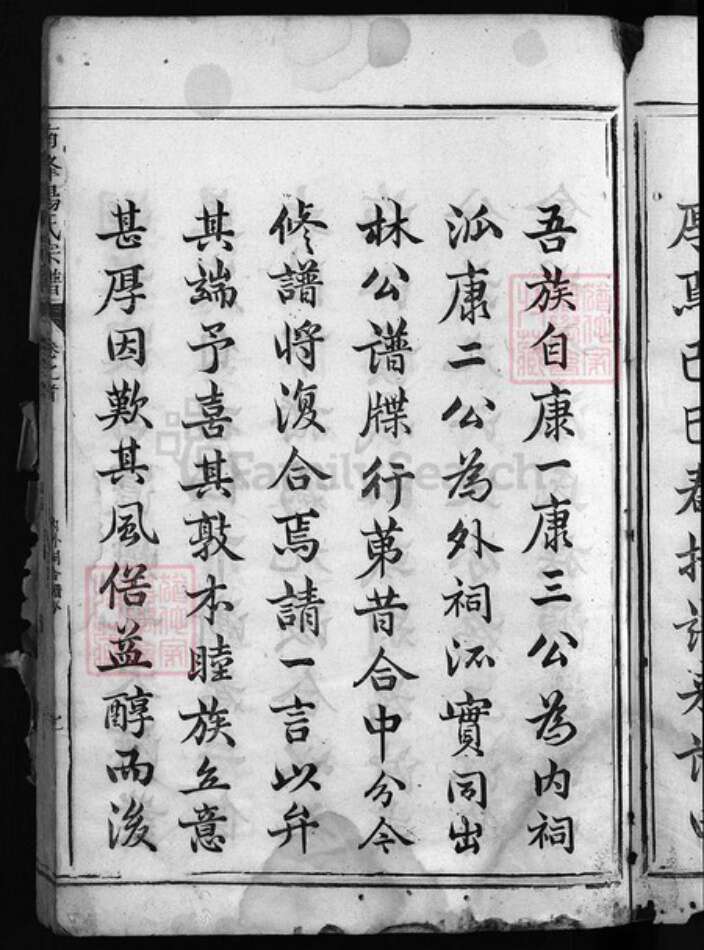 厚焉己巳春
吾族自康一康三公為內祠
派康二公為外祠派實同出
林公譜牒行第昔合中分今
修譜將復合焉請一言以弁
其端予喜其敦本睦族立意
甚厚因歎其風俗益醇而後
南峯楊氏宗譜
卷之首
FamilySearch